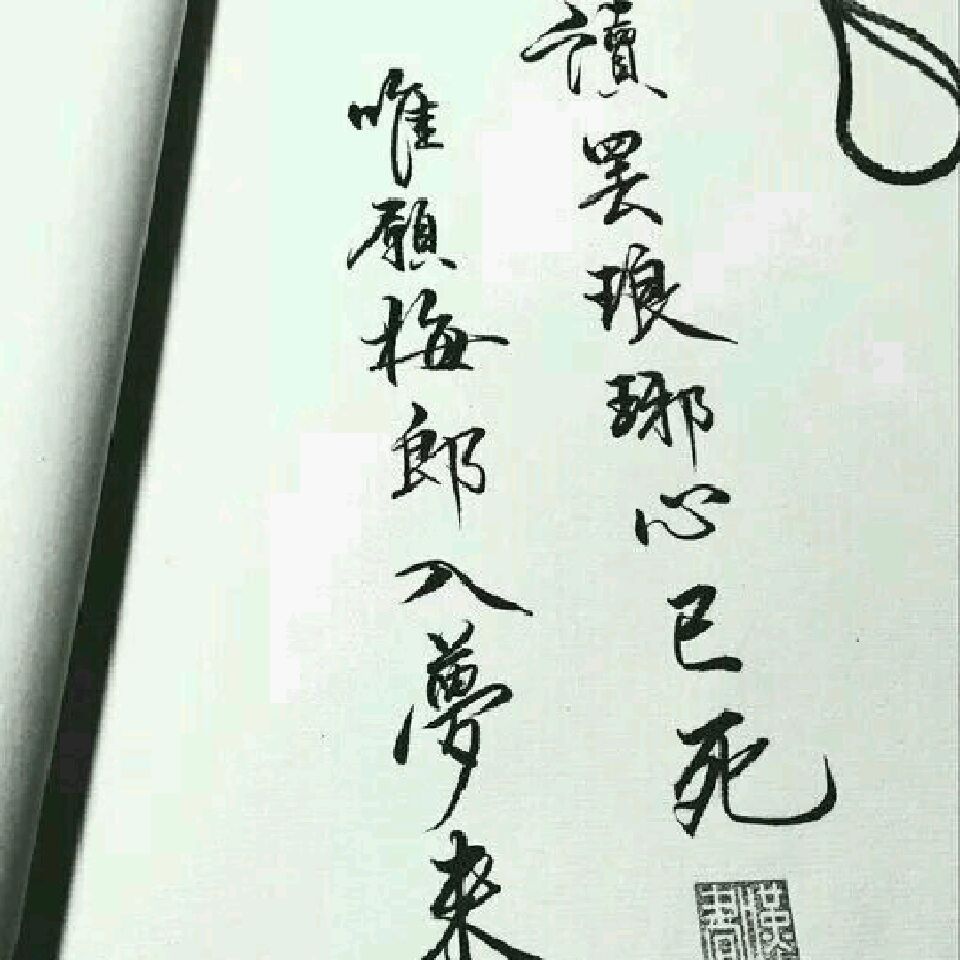 讀罢琅琊心已死
唯願梅郎入夢来